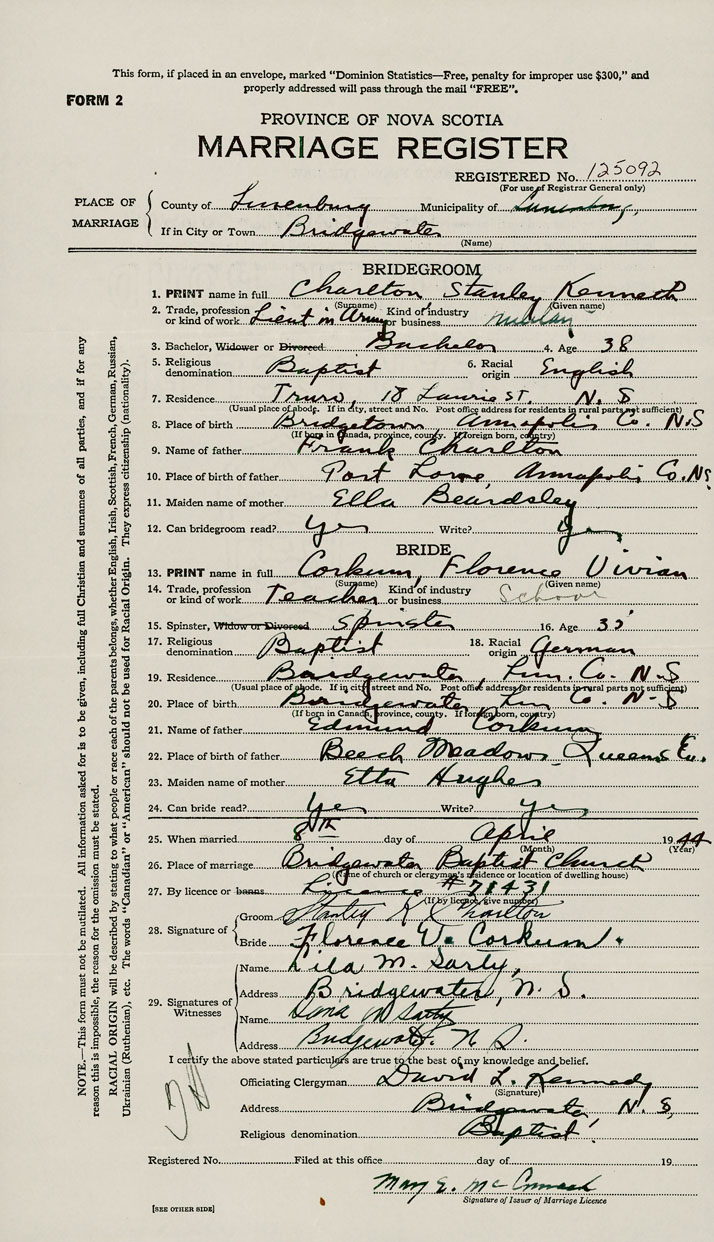 This form, if placed in an envelope, marked "Dominion Statistics—Free, penalty for improper use $300," and
properly addressed will pass through the mail "FREE".
FORM 2
PROVINCE OF NOVA SCOTIA
MARRIAGE REGISTER
REGISTERED No. 125092
(For use of Registrar General only)
PLACE OF MARRIAGE
County of Lunenburg Municipality of Lunenburg
If in City or Town Bridgewater
(Name)
BRIDEGROOM
1. PRINT name in full Charlton Stanley Kenneth
(Surname) (Given name)
2. Trade, profession or kind of work Lieut in Army Kind of industry or business
3. Bachelor, Widower or Divorced Bachelor 4. Age 38
5. Religious denomination Baptist 6. Racial origin English
7. Residence Truro, 18 Laurie St. N. S
(Usual place of abode. If in city, street and No. Post office address for residents in rural parts not sufficient)
8. Place of birth Bridgetown, Annapolis Co. N.S
(If born in Canada, province, county. If foreign born, country)
9. Name of father Frank Charlton
10. Place of birth of father Port Lorne, Annapolis Co. NS
11. Maiden name of mother Ella Beardsley
12. Can bridegroom read? Yes Write? Yes
BRIDE
13. PRINT name in full Corkum, Florence Vivian
(Surname) (Given name)
14. Trade, profession or kind of work Teacher Kind of industry or business School
15. Spinster, Widow or Divorced Spinster 16. Age
17. Religious denomination Baptist 18. Racial origin German
19. Residence Bridgewater, Lun. Co. N-S
(Usual place of abode. If in city street and No. Post office address for residents in rural parts not sufficient)
20. Place of birth Bridgewater, Lun Co. N-S
(If born in Canada, province, county. If foreign born, country)
21. Name of father Edmund Corkum
22. Place of birth of father Beech Meadows, Queens Co.
23. Maiden name of mother Etta Hughes
24. Can bride read? Yes Write? Yes
25. When married 8th day of April 1944
(Month) (Year)
26. Place of marriage Bridgewater Baptist Church
(Name of church or clergyman's residence or location of dwelling house)
27. By licence or banns Licence #71431
(If by licence, give number)
28. Signature of
Groom Stanley K Charlton
Bride Florence V. Corkum
29. Signatures of Witnesses
Name Lila M. Sarty,
Address Bridgewater, N. S.
Name Sarty
Address Bridgewater. N S.
I certify the above stated particulars are true to the best of my knowledge and belief.
Officiating Clergyman David L. Kennedy
(Signature)
Address Bridgewater N. S,
Religious denomination Baptist
Registered No. Filed at this office day of 19
Mary E. McCormack
Signature of Issuer of Marriage Licence
[SEE OTHER SIDE]
NOTE.—This form must not be mutilated. All information asked for is to be given, including full Christian and surnames of all parties, and if for any
reason this is impossible, the reason for the omission must be stated.
RACIAL ORIGIN will be described by stating to what people or race each of the parents belongs, whether English, Irish, Scottish, French, German, Russian,
Ukrainian (Ruthenian), etc. The words "Canadian" or "American" should not be used for Racial Origin. They express citizenship (nationality).